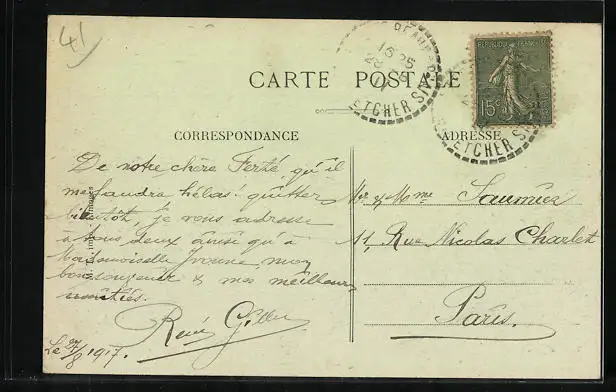 41
CARTE POSTALE
REPUBLIQUE FRANÇAISE
15c
ETCHER
ETCHER
CORRESPONDANCE
ADRESSE
De notre chère Ferté, qu'il
me faudra hélas! quitter
bientôt, je vous adresse
à tous deux ainsi qu'à
Mademoiselle Yvonne, mon
bon souvenir & mes meilleures
amitiés.
René
Le 1917.
Mr & Mme Saumiez
11, Rue Nicolas Charlet
Paris.